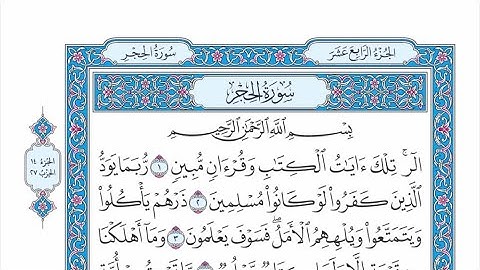 الجُزْءُ الرَّابِعَ عَشَرَ
سُورَةُ الحِجْرِ
سُورَةُ الحِجْرِ
بِسْمِ اللَّهِ الرَّحْمَٰنِ الرَّحِيمِ
الٓرۚ تِلْكَ ءَايَٰتُ ٱلْكِتَٰبِ وَقُرْءَانٍ مُّبِينٍ ١ رُّبَمَا يَوَدُّ
ٱلَّذِينَ كَفَرُوا۟ لَوْ كَانُوا۟ مُسْلِمِينَ ٢ ذَرْهُمْ يَأْكُلُوا۟
وَيَتَمَتَّعُوا۟ وَيُلْهِهِمُ ٱلْأَمَلُۖ فَسَوْفَ يَعْلَمُونَ ٣ وَمَآ أَهْلَكْنَا
الجُزْءُ ١٤
الحِزْبُ ٢٧